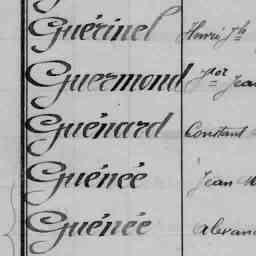 Guérinel Henri Jh
Guermond Jean
Guénard Constant
Guénée Jean M
Guénée Alexan